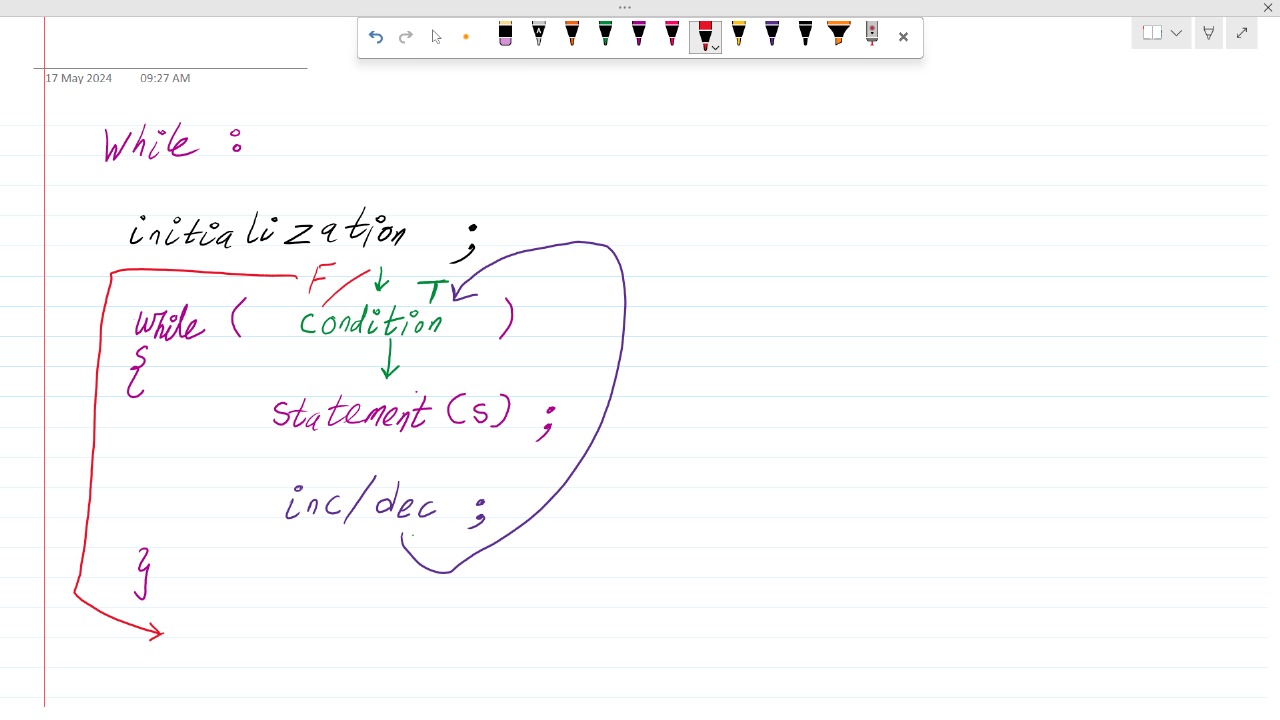 17 May 2024 09:27 AM
While :
initialization ;
F T
while ( condition )
{
statement(s) ;
inc/dec ;
}